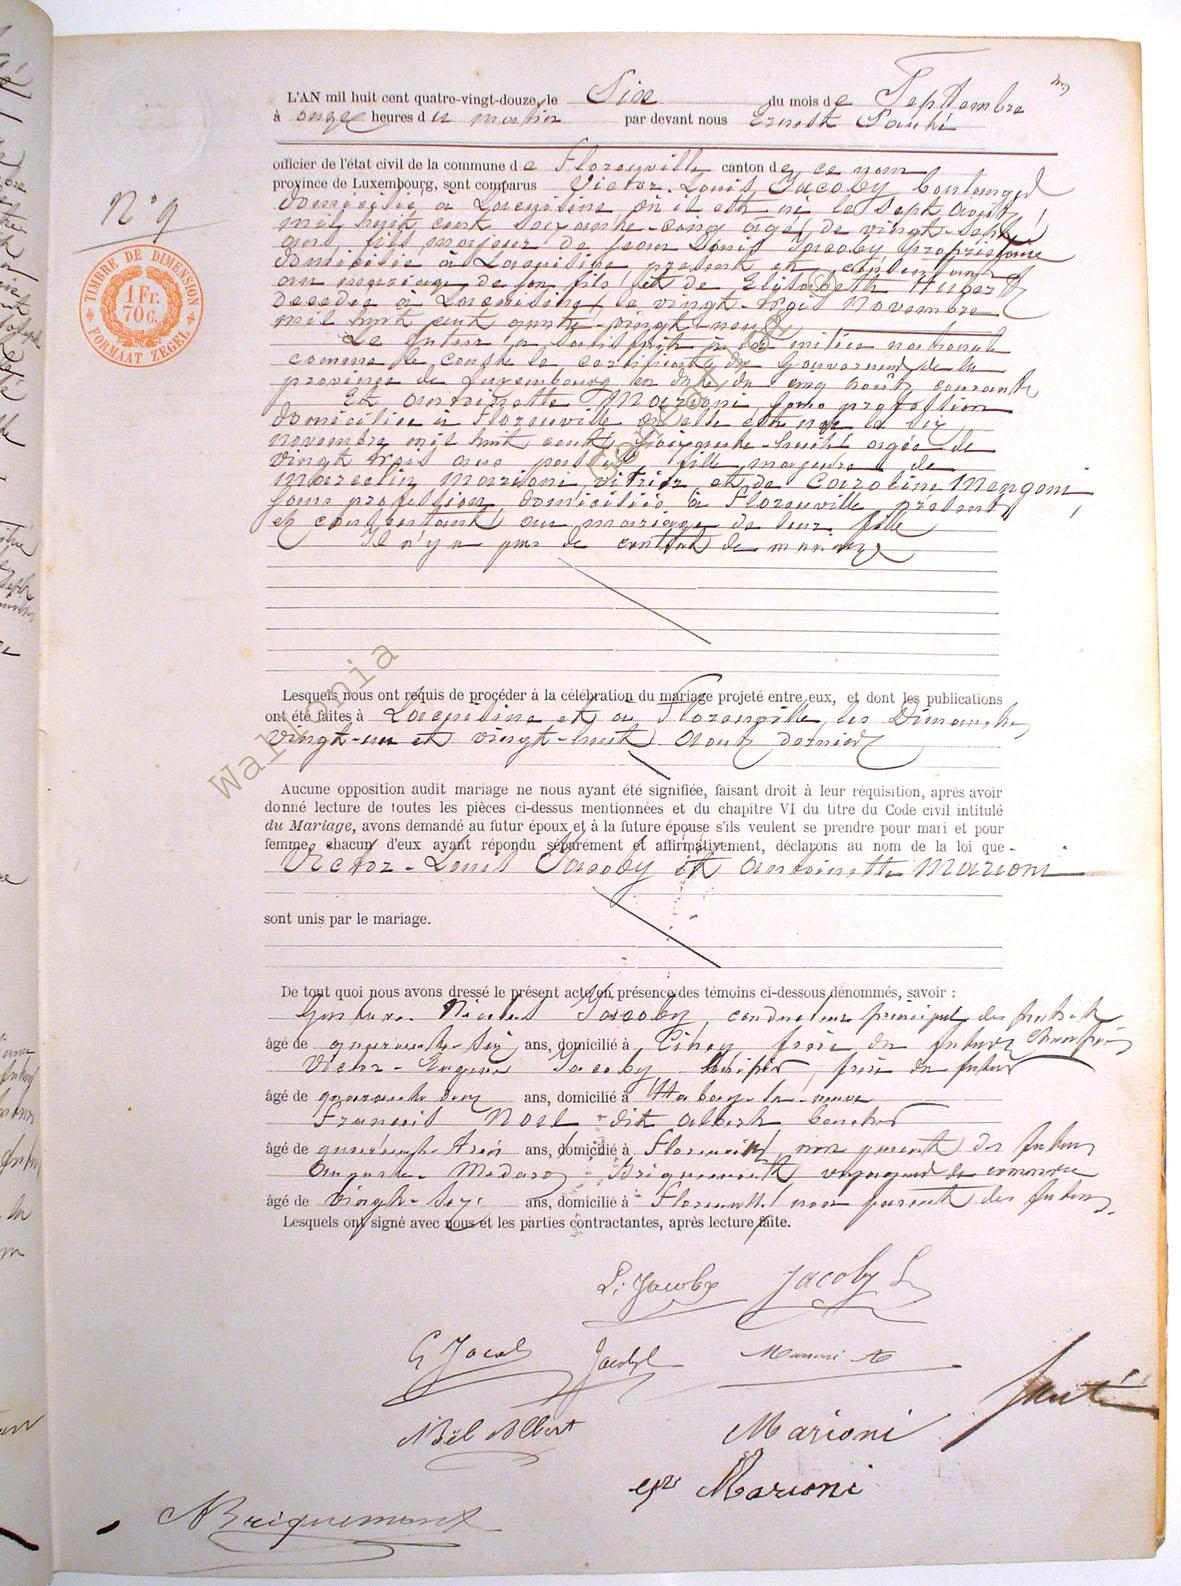 L'AN mil huit cent quatre-vingt-douze, le Six du mois de Septembre
à onze heures du matin par devant nous Ernest Sauté
officier de l'état civil de la commune de Florenville canton de ce nom
province de Luxembourg, sont comparus Victor-Louis Jacoby boulanger
N° 9
domicilié à Lacuisine où il est né le sept août
mil huit cent soixante-cinq âgé de vingt-sept
ans, fils majeur de Jean Louis Jacoby propriétaire
domicilié à Lacuisine présent et consentant
au mariage de son fils et de Elisabeth Hubert
décédée à Lacuisine le vingt-trois Novembre
mil huit cent quatre-vingt-neuf
TIMBRE DE DIMENSION
1 Fr. 70 C.
FORMAAT ZEGEL
Le futur a satisfait à la milice nationale
comme le constate le certificat du Gouverneur de la
province de Luxembourg en date du cinq août courant
Et Antoinette Marioni, sans profession
domiciliée à Florenville où elle est née le six
novembre mil huit cent soixante-huit âgée de
vingt trois ans passés, fille majeure de
Marcelin Marioni, vitrier et de Caroline Mengoni
sans profession, domiciliés à Florenville présents
et consentant au mariage de leur fille
Il n'y a pas de contrat de mariage
Lesquels nous ont requis de procéder à la célébration du mariage projeté entre eux, et dont les publications
ont été faites à Lacuisine et à Florenville, les Dimanches
vingt-un et vingt-huit Août dernier
Wallonia
Aucune opposition audit mariage ne nous ayant été signifiée, faisant droit à leur réquisition, après avoir
donné lecture de toutes les pièces ci-dessus mentionnées et du chapitre VI du titre du Code civil intitulé
du Mariage, avons demandé au futur époux et à la future épouse s'ils veulent se prendre pour mari et pour
femme, chacun d'eux ayant répondu séparément et affirmativement, déclarons au nom de la loi que -
Victor-Louis Jacoby et Antoinette Marioni
sont unis par le mariage.
De tout quoi nous avons dressé le présent acte en présence des témoins ci-dessous dénommés, savoir :
Gustave Nicolas Jacoby, conducteur principal des
âgé de quarante-six ans, domicilié à Ciney frère du futur
Victor-Eugène Jacoby, frère du futur
âgé de quarante deux ans, domicilié à Habay-la-neuve
François Noël dit Albert boucher
âgé de quarante trois ans, domicilié à Florenville, non parent des futurs
Auguste Médard Briquemont voyageur de commerce
âgé de vingt-six ans, domicilié à Florenville non parent des futurs.
Lesquels ont signé avec nous et les parties contractantes, après lecture faite.
L. Jacoby Jacoby L
G Jacoby Jacoby Marioni A
Sauté
Noël Albert Marioni
Marioni
A Briquemont